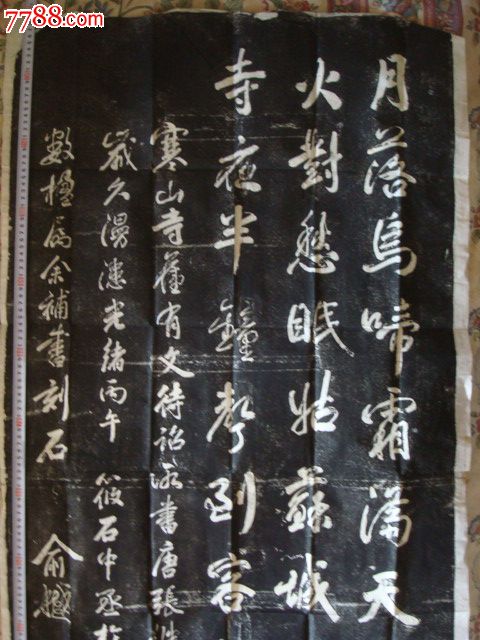 7788.com
月落烏啼霜滿天
火對愁眠姑蘇城
寺夜半鐘聲到客
寒山寺舊有文待詔所書唐張
歲久漫漶光緒丙午 筱石中丞於
數楹屬余補書刻石 俞樾